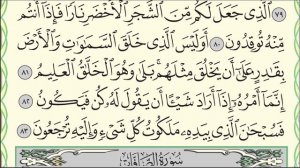 ٧٩ الَّذِي جَعَلَ لَكُم مِّنَ الشَّجَرِ الْأَخْضَرِ نَارًا فَإِذَا أَنتُم
مِّنْهُ تُوقِدُونَ ٨٠ أَوَلَيْسَ الَّذِي خَلَقَ السَّمَٰوَٰتِ وَالْأَرْضَ
بِقَٰدِرٍ عَلَىٰ أَن يَخْلُقَ مِثْلَهُم بَلَىٰ وَهُوَ الْخَلَّٰقُ الْعَلِيمُ ٨١
إِنَّمَا أَمْرُهُ إِذَا أَرَادَ شَيْئًا أَن يَقُولَ لَهُ كُن فَيَكُونُ ٨٢
فَسُبْحَٰنَ الَّذِي بِيَدِهِ مَلَكُوتُ كُلِّ شَيْءٍ وَإِلَيْهِ تُرْجَعُونَ ٨٣
سُورَةُ الصَّافَّاتِ